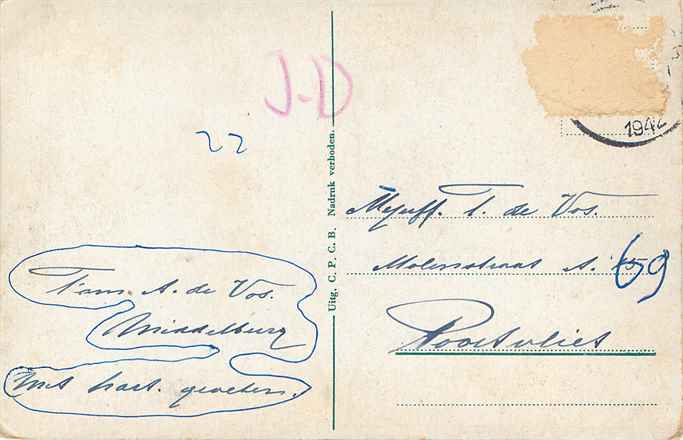 J-D
22
Fam. A. de Vos.
Middelburg
Met hart. groeten.
Uitg. C. P. C. B. Nadruk verboden.
1942
Mejuff. T. de Vos.
Molenstraat A.
69
Poortvliet